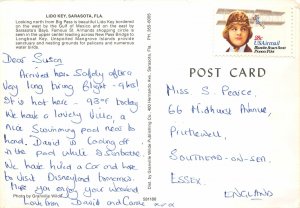 LIDO KEY, SARASOTA, FLA.
Looking north from Big Pass is beautiful Lido Key bordered
on the west by the Gulf of Mexico and on the east by
Sarasota Bay. Famous St. Armands shopping circle is
in upper right center facing across New Pass Bridge to
Longboat Key. Unspoiled Mangrove Islands provide
sanctuary and nesting grounds for pelicans and numerous
water birds.
Dear Susan
Arrived here Safely after a
Very long tiring flight - 9hrs!
It is hot here - 93° today
We have a lovely Villa, a
nice Swimming pool next to
hand. David is Cooling off
in the pool while I Sunbathe.
We have hired a Car and hope
to visit Disneyland tomorrow.
Hope you enjoy your weekend
Love from David and Carole xxx
Photo by Granville Wilde
501188
Dist. by Granville Wilde Publishing Co.
USAirmail
POST CARD
Miss S. Pearce,
66 Midhurst Avenue,
Prittlewell,
SOUTHEND-ON-SEA.
ESSEX.
ENGLAND